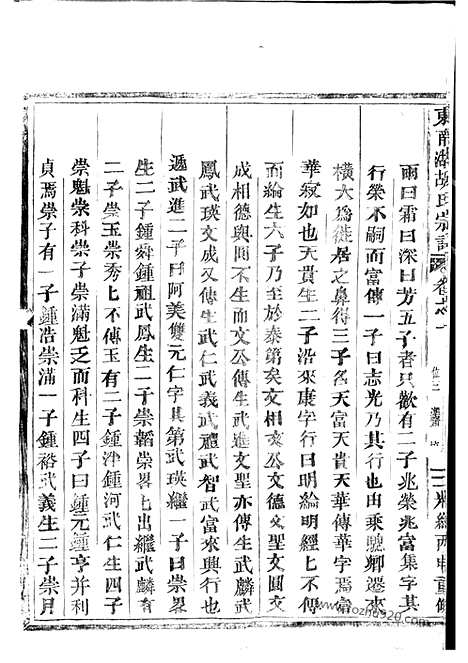 東南湖胡氏宗譜 卷之一
雨曰霜曰深曰芳五子者只歡有二子兆榮兆富集字其
行榮不嗣而富傳一子曰志光乃其行也由乘驄鄉遷來
橫大爲徙居之鼻得三子名天富天貴天華傳華字焉富
華寂如也天貴生二子沿來康字行曰明綸明經上不傳
而綸生六子乃至於泰第矣文相文公文德文聖文圓文
成相德與圓不生而文公傳生武進文聖亦傳生武麟武
鳳武瑛文成又傳生武仁武義武禮武智武富來興行也
遞武進二子曰阿美雙元仁字其第武瑛繼一子曰崇畧
生二子鍾舜鍾祖武鳳生二子崇韜崇畧上出繼武麟育
二子崇玉崇秀上不傳玉有二子鍾泮鍾河武仁生四子
崇魁崇科崇子崇滿魁乏而科生四子曰鍾元鍾亨并利
貞焉崇子有一子鍾浩崇滿一子鍾裕武義生二子崇月
光緒丙申重修